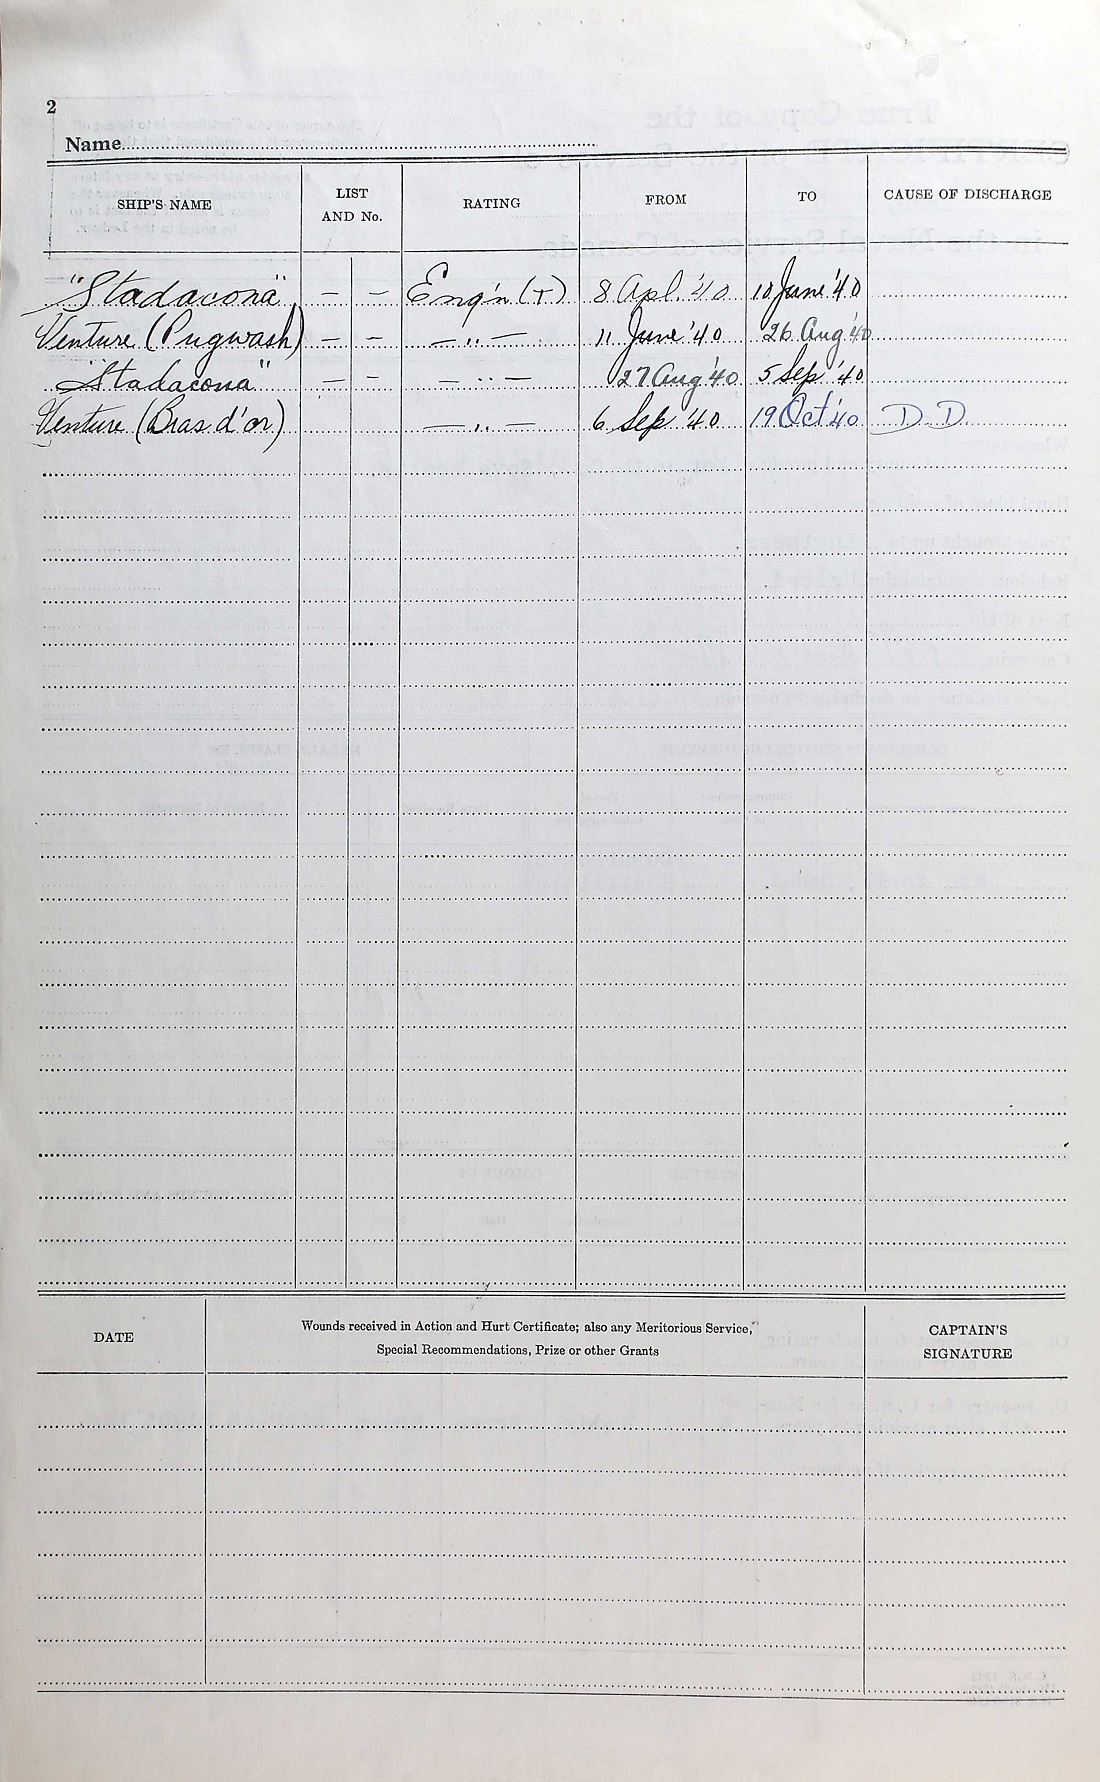 2
Name
SHIP'S NAME LIST AND No. RATING FROM TO CAUSE OF DISCHARGE
"Stadacona" — — Eng'n (T) 8 Apl. '40 10 June '40
Venture (Pugwash) — — — " — 11 June '40 26 Aug '40
"Stadacona" — — — " — 27 Aug '40 5 Sep '40
Venture (Bras d'or) — " — 6 Sep '40 19 Oct '40 D.D.
DATE Wounds received in Action and Hurt Certificate; also any Meritorious Service, CAPTAIN'S
Special Recommendations, Prize or other Grants SIGNATURE